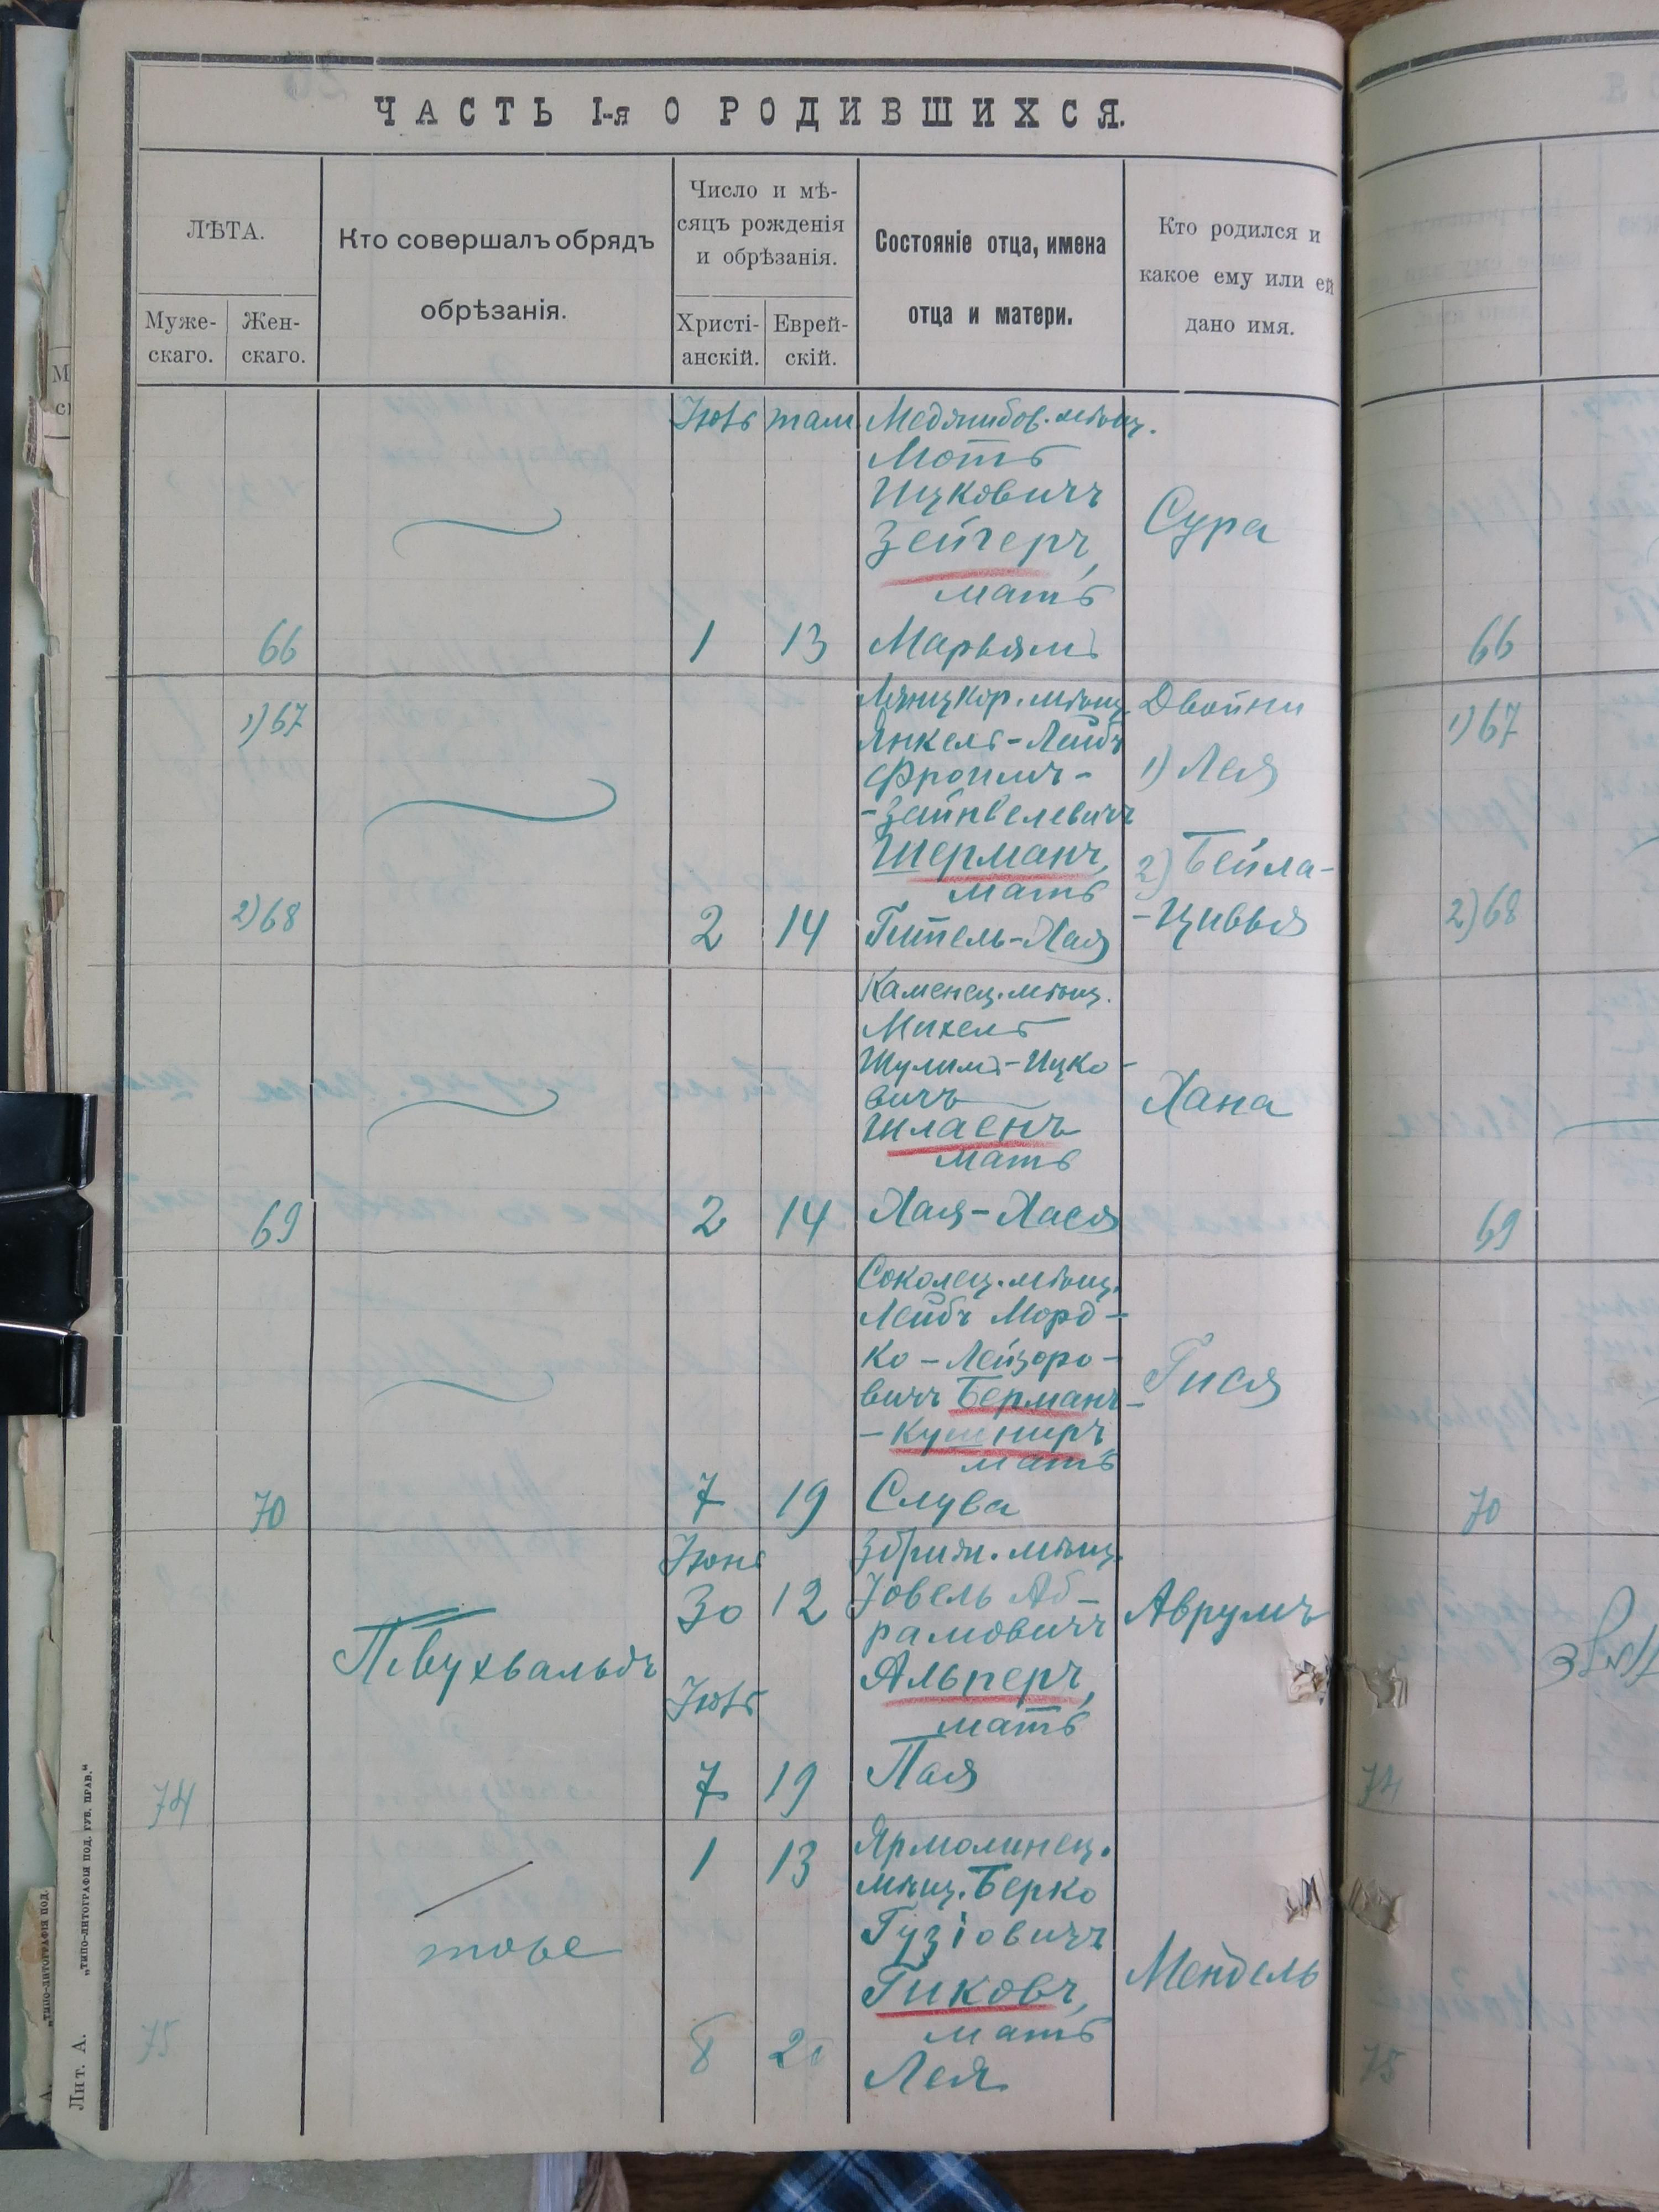 ЧАСТЬ I-я О РОДИВШИХСЯ.
ЛѢТА.
Муже-
скаго.
Жен-
скаго.
Кто совершалъ обрядъ
обрѣзанія.
Число и мѣ-
сяцъ рожденія
и обрѣзанія.
Христі-
анскій.
Еврей-
скій.
Состояніе отца, имена
отца и матери.
Кто родился и
какое ему или ей
дано имя.
Іюль там Меджибов. мѣщ.
Мотъ
Ицковичъ
Зейгеръ,
мать
66 1 13 Марьямъ
Сура
Ляцкор. мѣщ.
1) 67 Янкель-Лейбъ
Фроимъ-
-Зайнвелевичъ
Шерманъ,
мать
2) 68 2 14 Гитель-Хая
Двойни
1) Лея
2) Бейла-
-Цивья
Каменец. мѣщ.
Михель
Шулимъ-Ицко-
вичъ
Шлаенъ
мать
69 2 14 Хая-Хася
Хана
Соколец. мѣщ.
Лейбъ Морд-
ко-Лейзоро-
вичъ Берманъ-
-Кушниръ
мать
70 7 19 Слува
Гися
Іюнь Збриж. мѣщ.
30 12 Іовель Аб-
рамовичъ
П. Вухвальдъ Альперъ,
Іюль мать
74 7 19 Пая
Аврумъ
1 13 Ярмолинец.
мѣщ. Берко
Гузіовичъ
тоже Гиковъ,
мать
75 8 20 Лея
Мендель
66
1) 67
2) 68
69
70
74
75
Лит. А. „ТИПО-ЛИТОГРАФІЯ ПОД. ГУБ. ПРАВ.“